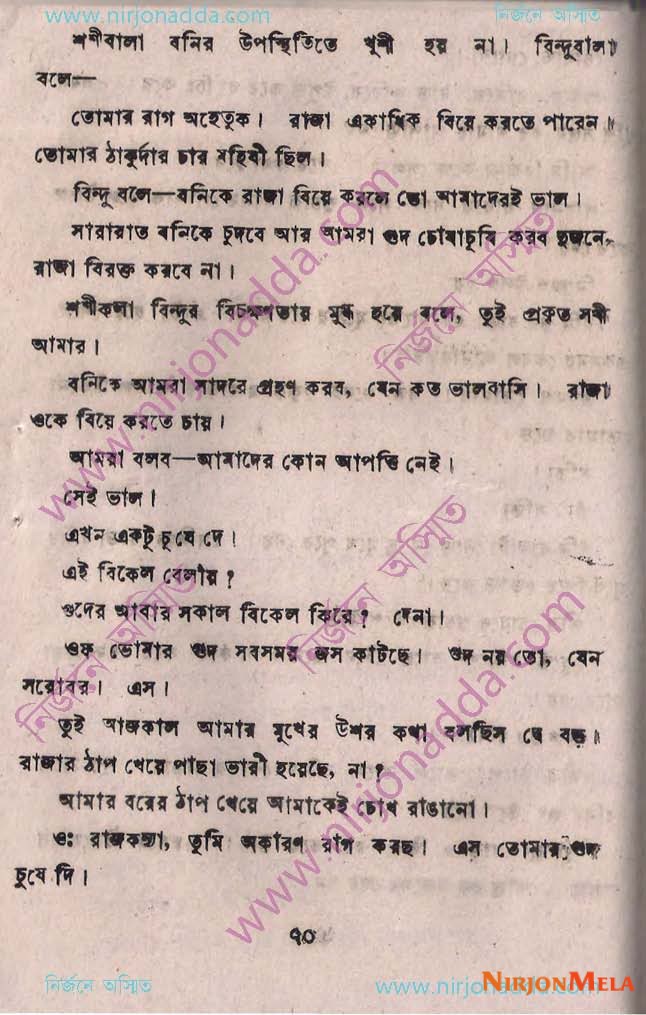 www.nirjonadda.com নির্জনে অস্মিত
শশীবালা বনির উপস্থিতিতে খুশী হয় না। বিন্দুবালা
বলে—
তোমার রাগ অহেতুক। রাজা একাধিক বিয়ে করতে পারেন।
তোমার ঠাকুর্দার চার মহিষী ছিল।
বিন্দু বলে—বনিকে রাজা বিয়ে করলে তো আমাদেরই ভাল।
সারারাত বনিকে চুদবে আর আমরা গুদ চোষাচুষি করব দুজনে-
রাজা বিরক্ত করবে না।
শশীকলা বিন্দুর বিচক্ষণতায় মুগ্ধ হয়ে বলে, তুই প্রকৃত সখী
আমার।
বনিকে আমরা সাদরে গ্রহণ করব, যেন কত ভালবাসি। রাজা
ওকে বিয়ে করতে চায়।
আমরা বলব—আমাদের কোন আপত্তি নেই।
সেই ভাল।
এখন একটু চুষে দে।
এই বিকেল বেলায়?
গুদের আবার সকাল বিকেল কিরে? দেনা।
ওফ তোমার গুদ সবসময় জল কাটছে। গুদ নয় তো, যেন
সরোবর। এস।
তুই আজকাল আমার মুখের উপর কথা বলছিস যে বড়।
রাজার ঠাপ খেয়ে পাছা ভারী হয়েছে, না?
আমার বরের ঠাপ খেয়ে আমাকেই চোখ রাঙানো।
ওঃ রাজকন্যা, তুমি অকারণ রাগ করছ। এস তোমার গুদ
চুষে দি।
৭০
নির্জনে অস্মিত www.nirjonadda.com
NIRJONMELA